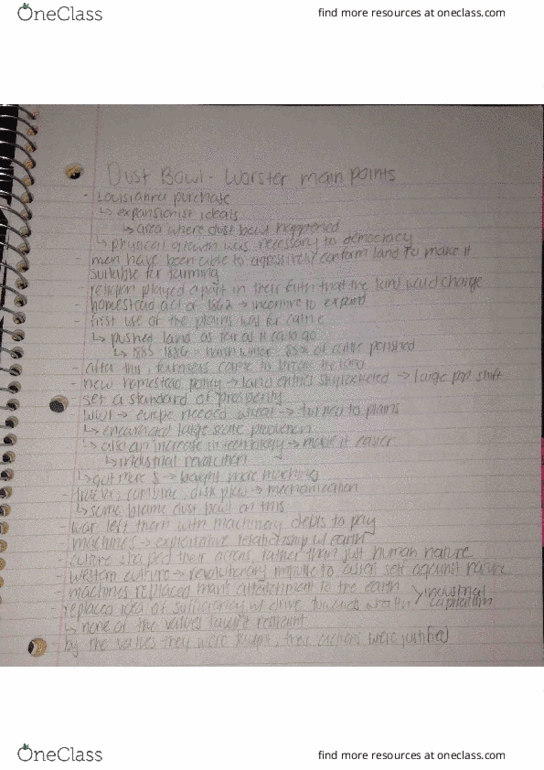 OneClass
find more resources at oneclass.com
Dust Bowl - Worster main points
- Louisianna purchase
↳ expansionist ideals
↳ area where dust bowl happened
↳ physical growth was necessary to democracy
- men have been able to aggressively conform land to make it
suitable for farming
- religion played a part in their faith that the land would change
- homestead act of 1862 → incentive to expand
- first use of the plains was for cattle
↳ pushed land as far as it could go
↳ 1885-1886 → harsh winter: 85% of cattle perished
- after this, farmers came to the land
- new homestead policy → land entries skyrocketed → large pop shift
set a standard of prosperity
- WWI → europe needed wheat → turned to plains
↳ encouraged large scale production
↳ also an increase in technology → make it easier
↳ industrial revolution
↳ got more $ → bought more machines
- tractor, combine, disk plow → mechanization
↳ some blame dust bowl on this
- war left them with machinery debts to pay
machines → exploitative relationship w/ earth
- culture shaped their actions, rather than just human nature
- western culture → revolutionary impulse to self against nature
machines replaced man's attachment to the earth
- replaced idea of sufficiency w/ drive towards wealth
industrial
capitalism
↳ none of the values taught restraint
by the values they were taught, their actions were justified
OneClass
find more resources at oneclass.com